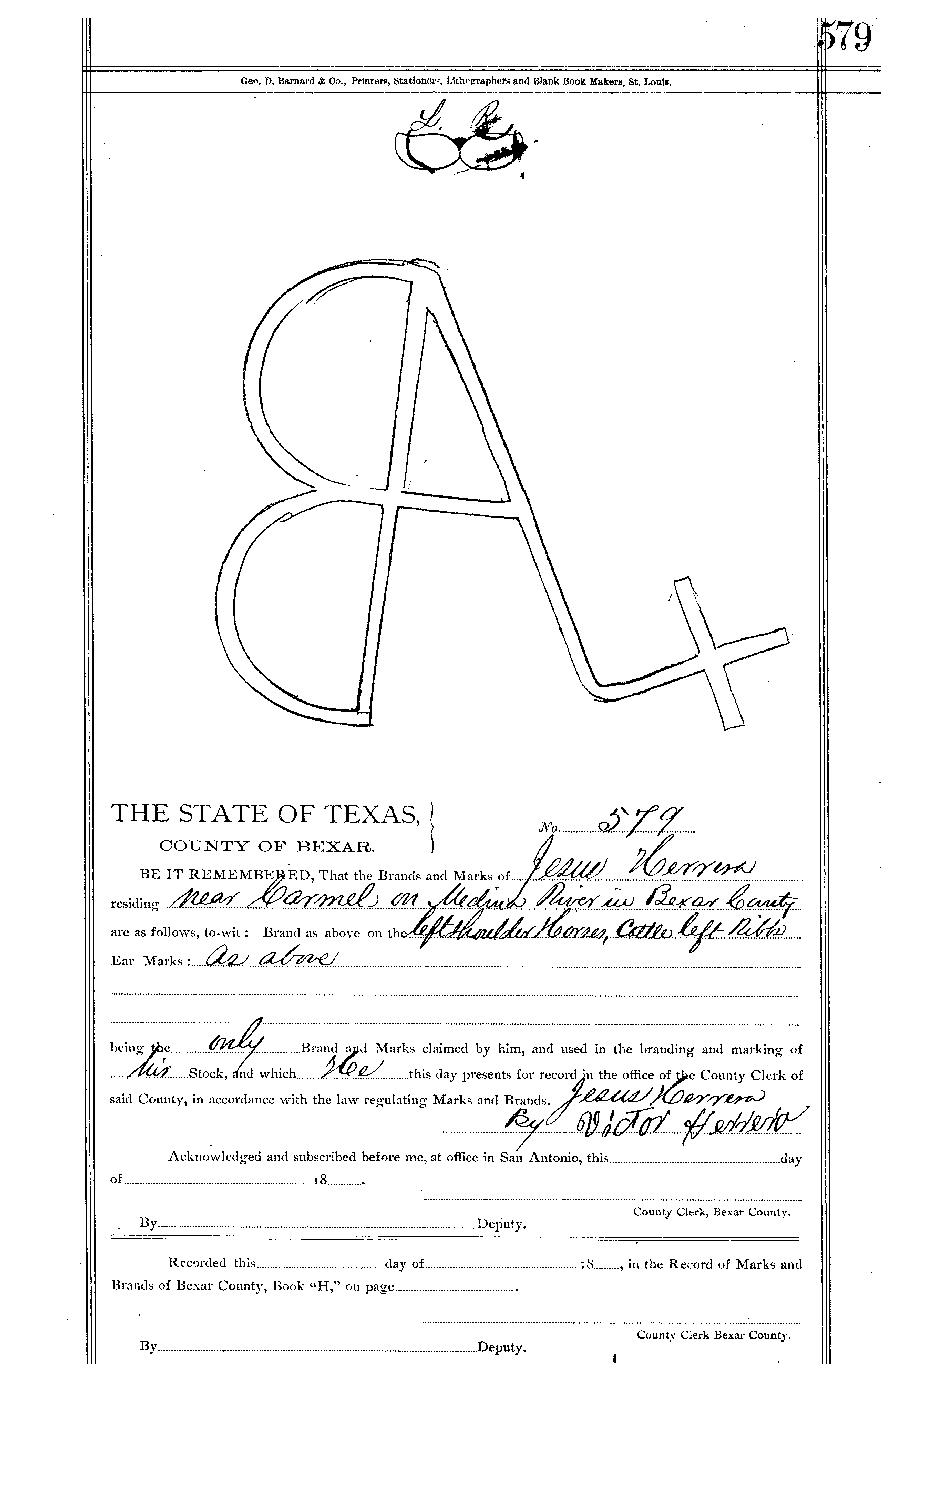 579
Geo. D. Barnard & Co., Printers, Stationers, Lithographers and Blank Book Makers, St. Louis.
L. R
THE STATE OF TEXAS,
COUNTY OF BEXAR.
No. 579
BE IT REMEMBERED, That the Brands and Marks of Jesus Herrera
residing near Carmel on Medina River in Bexar County
are as follows, to-wit: Brand as above on the left shoulder Horses, Cattle left Ribbs
Ear Marks: As above
being the only Brand and Marks claimed by him, and used in the branding and marking of
his Stock, and which He this day presents for record in the office of the County Clerk of
said County, in accordance with the law regulating Marks and Brands. Jesus Herrera
By Victor Herrera
Acknowledged and subscribed before me, at office in San Antonio, this day
of 18 .
County Clerk, Bexar County.
By Deputy.
Recorded this day of 18 , in the Record of Marks and
Brands of Bexar County, Book “H,” on page .
County Clerk Bexar County.
By Deputy.